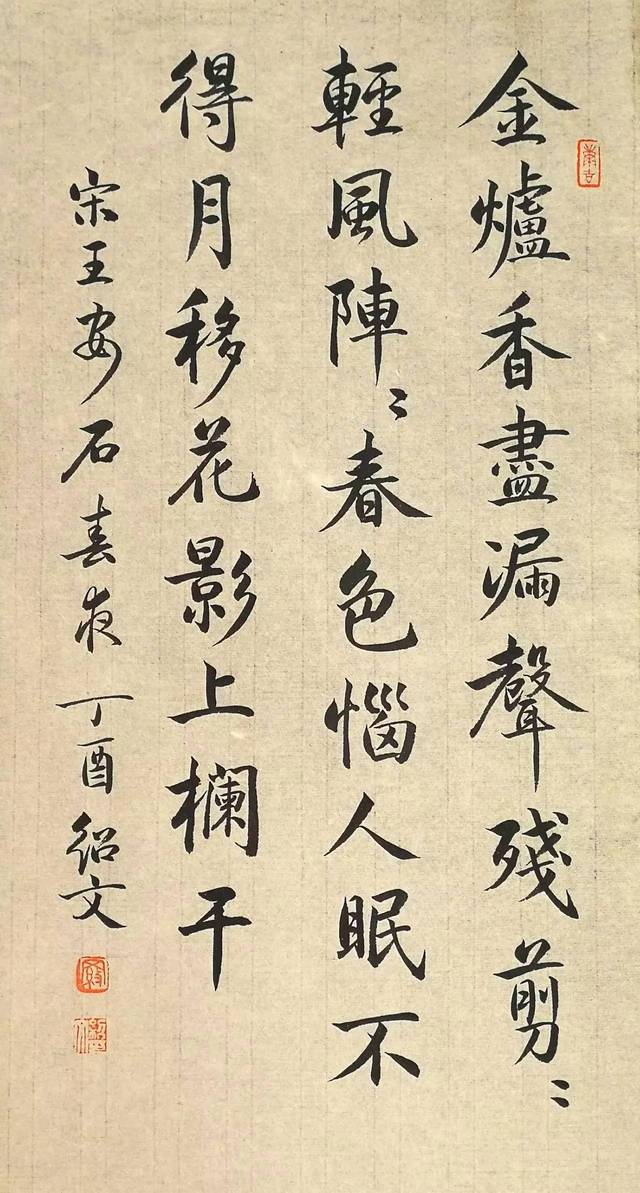 金爐香盡漏聲殘剪〻
輕風陣〻春色惱人眠不
得月移花影上欄干
宋王安石春夜丁酉紹文